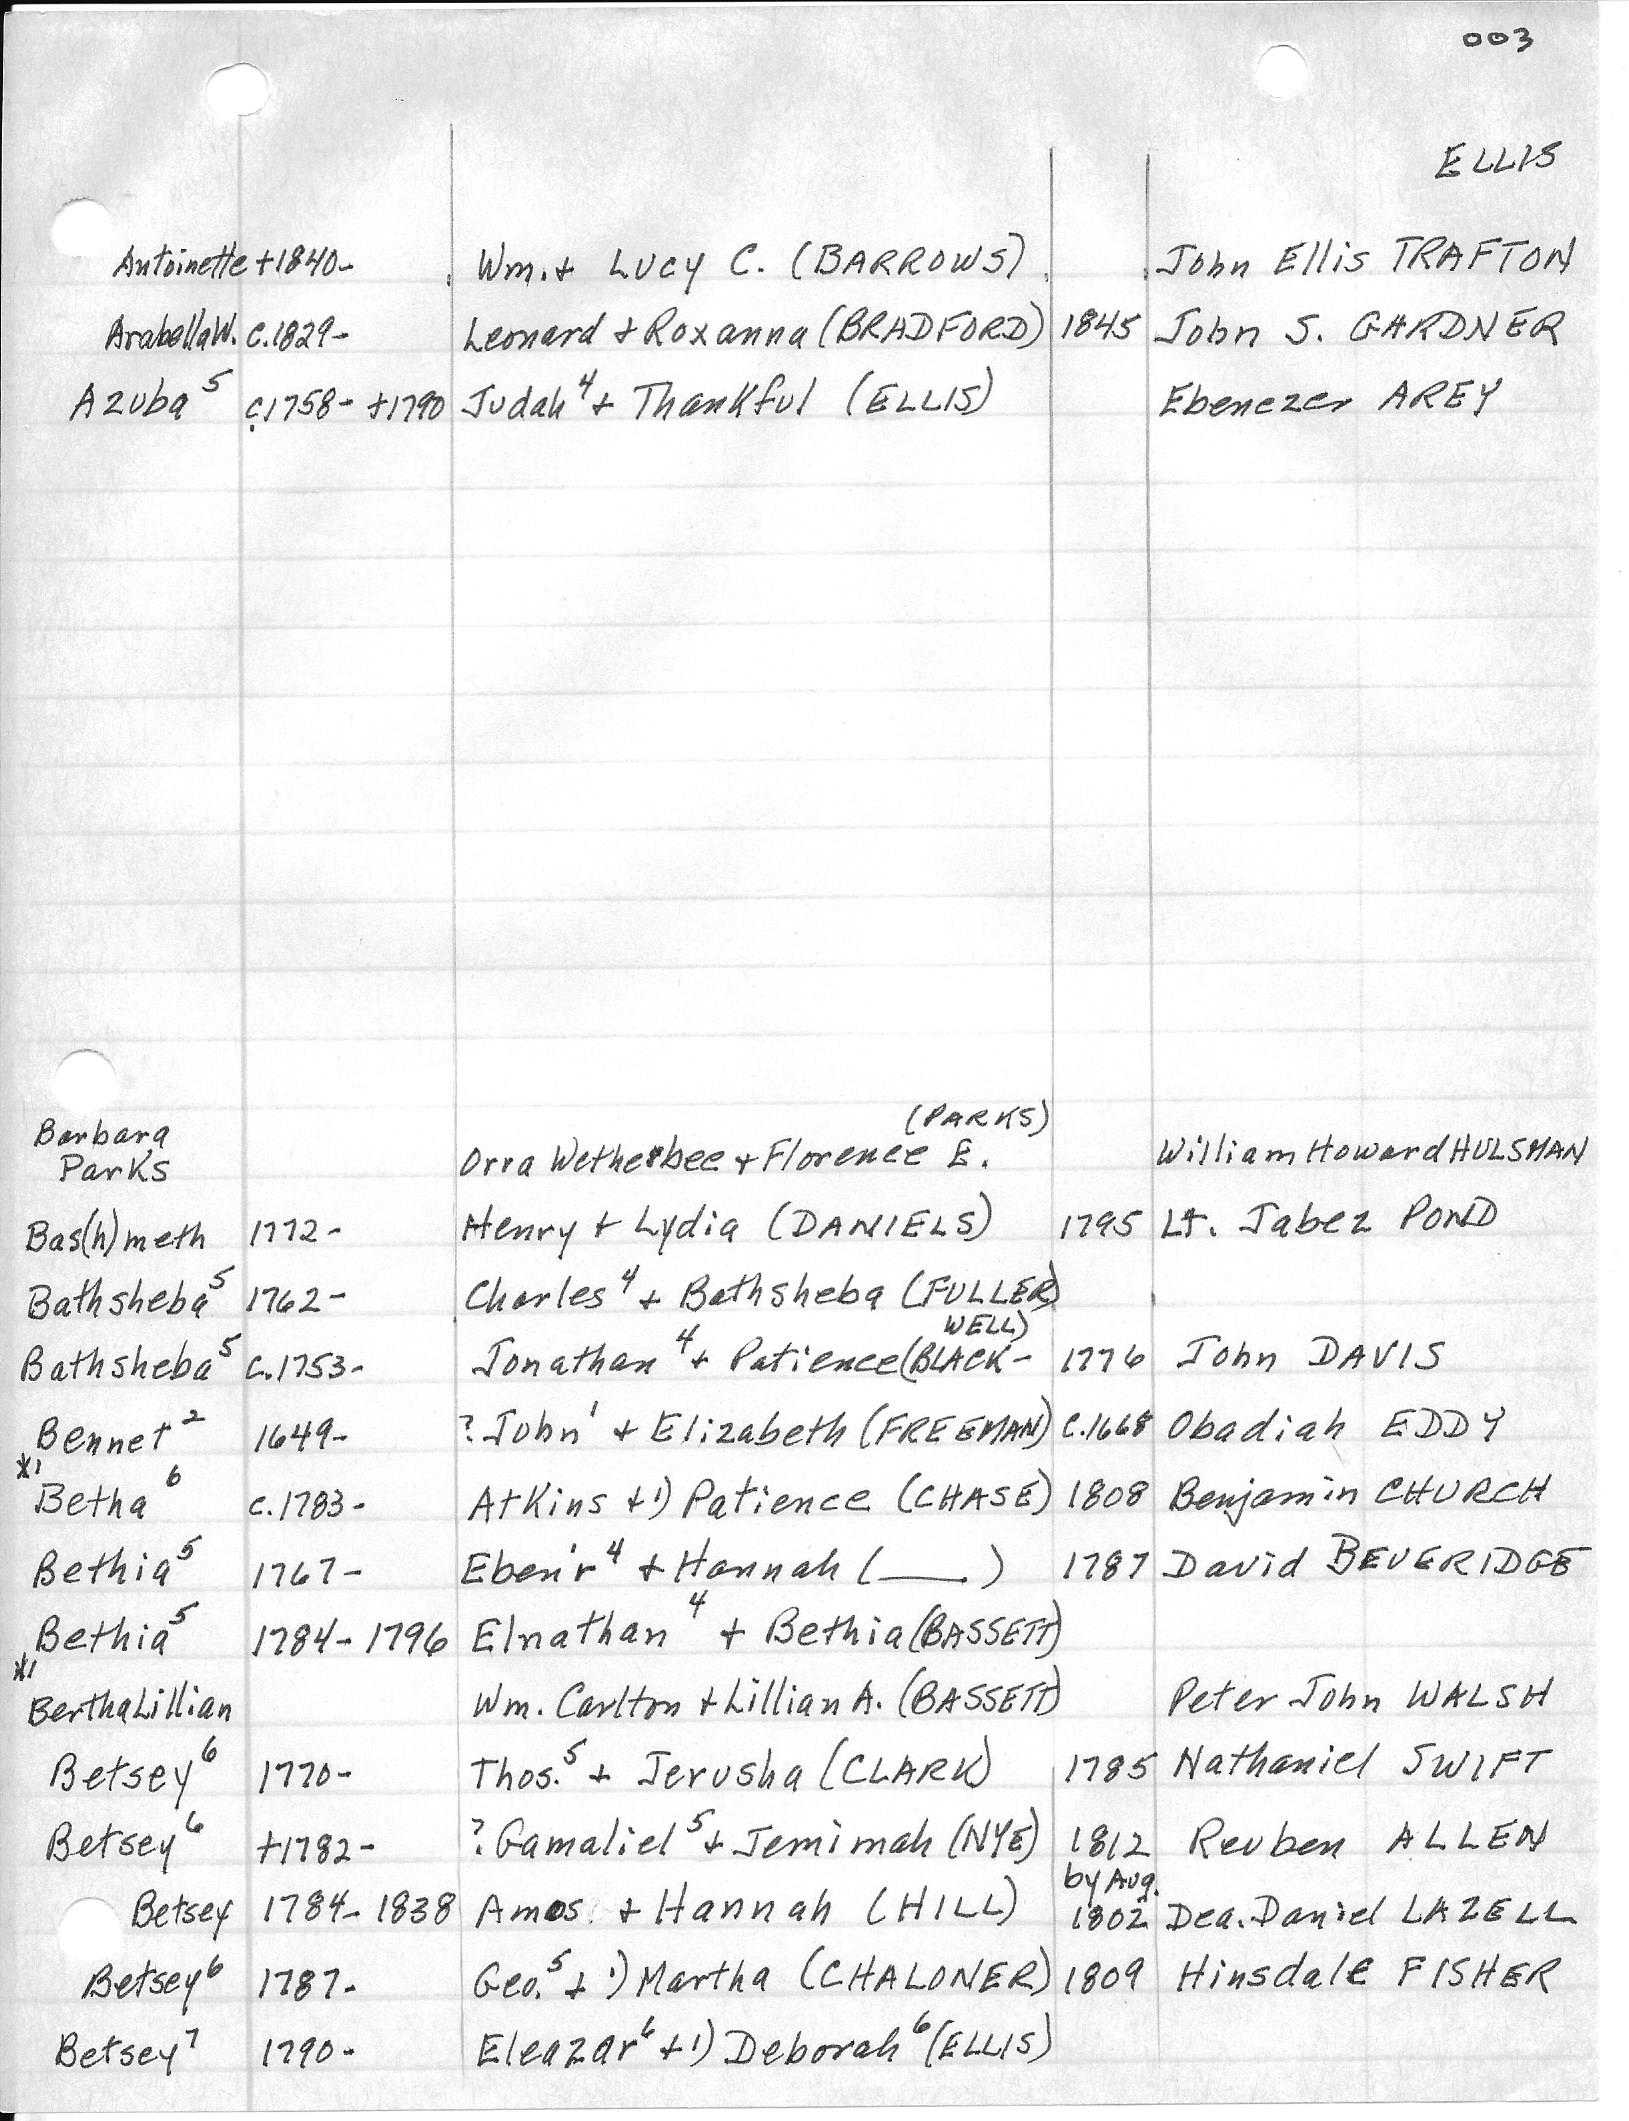 003
ELLIS
Antoinette +1840- Wm. + Lucy C. (BARROWS) John Ellis TRAFTON
Arabella W. c.1829- Leonard + Roxanna (BRADFORD) 1845 John S. GARDNER
Azuba⁵ c.1758- +1790 Judah⁴ + Thankful (ELLIS) Ebenezer AREY
(PARKS)
Barbara
Parks Orra Wetherbee + Florence E. William Howard HULSMAN
Bas(h)meth 1772- Henry + Lydia (DANIELS) 1795 Lt. Jabez POND
Bathsheba⁵ 1762- Charles⁴ + Bathsheba (FULLER)
WELL)
Bathsheba⁵ c.1753- Jonathan⁴ + Patience (BLACK- 1776 John DAVIS
Bennet² 1649- ? John¹ + Elizabeth (FREEMAN) c.1668 Obadiah EDDY
*1
Betha⁶ c.1783- Atkins + 1) Patience (CHASE) 1808 Benjamin CHURCH
Bethia⁵ 1767- Eben'r⁴ + Hannah (____) 1787 David BEVERIDGE
Bethia⁵ 1784-1796 Elnathan⁴ + Bethia (BASSETT)
*1
Bertha Lillian Wm. Carlton + Lillian A. (BASSETT) Peter John WALSH
Betsey⁶ 1770- Thos.⁵ + Jerusha (CLARK) 1785 Nathaniel SWIFT
Betsey⁶ +1782- ? Gamaliel⁵ + Jemimah (NYE) 1812 Reuben ALLEN
by Aug.
Betsey 1784-1838 Amos + Hannah (HILL) 1802 Dea. Daniel LAZELL
Betsey⁶ 1787- Geo.⁵ + 1) Martha (CHALONER) 1809 Hinsdale FISHER
Betsey⁷ 1790- Eleazar⁶ + 1) Deborah⁶ (ELLIS)